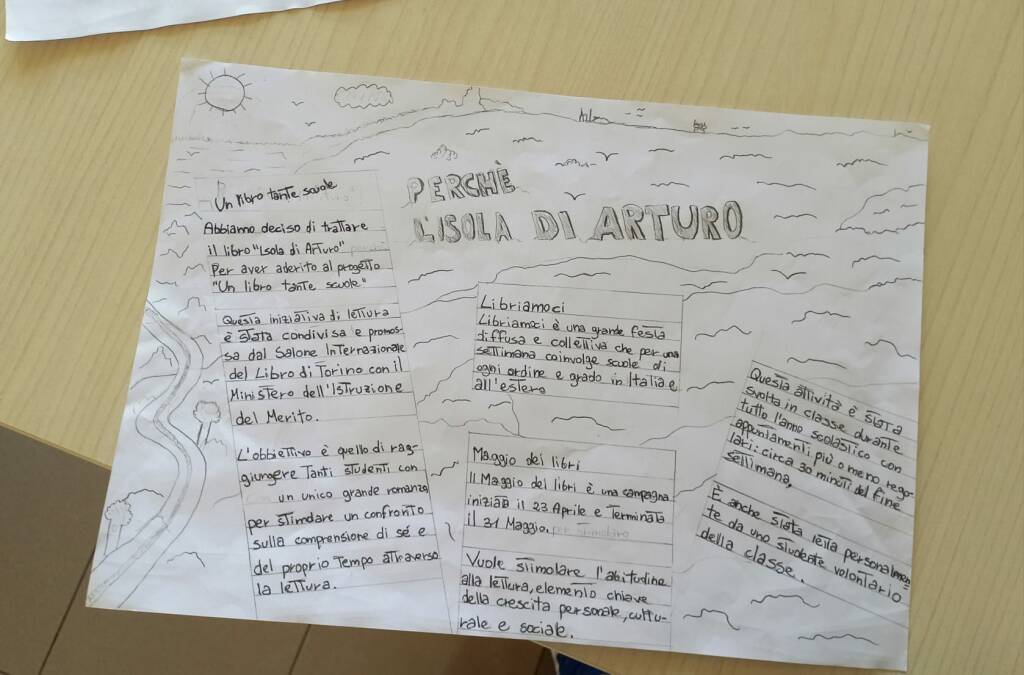 PERCHÈ
L'ISOLA DI ARTURO
Un libro tante scuole
Abbiamo deciso di trattare
il libro "Isola di Arturo"
Per aver aderito al progetto
"Un libro tante scuole"
Questa iniziativa di lettura
è stata condivisa e promos-
sa dal Salone Internazionale
del Libro di Torino con il
Ministero dell'Istruzione
del Merito.
L'obbiettivo è quello di rag-
giungere Tanti studenti con
un unico grande romanzo
per stimolare un confronto
sulla comprensione di sé e
del proprio Tempo attraverso
la lettura.
Libriamoci
Libriamoci è una grande festa
diffusa e collettiva che per una
settimana coinvolge scuole di
ogni ordine e grado in Italia e
all'estero
Maggio dei libri
Il Maggio dei libri è una campagna
iniziata il 23 Aprile e Terminata
il 31 Maggio. per stimolare
Vuole stimolare l'abitudine
alla lettura, elemento chiave
della crescita personale, cultu-
rale e sociale.
Questa attività è stata
svolta in classe durante
tutto l'anno scolastico con
appuntamenti più o meno rego-
lari: circa 30 minuti del fine
settimana,
È anche stata letta personalmen-
te da uno studente volontario
della classe.